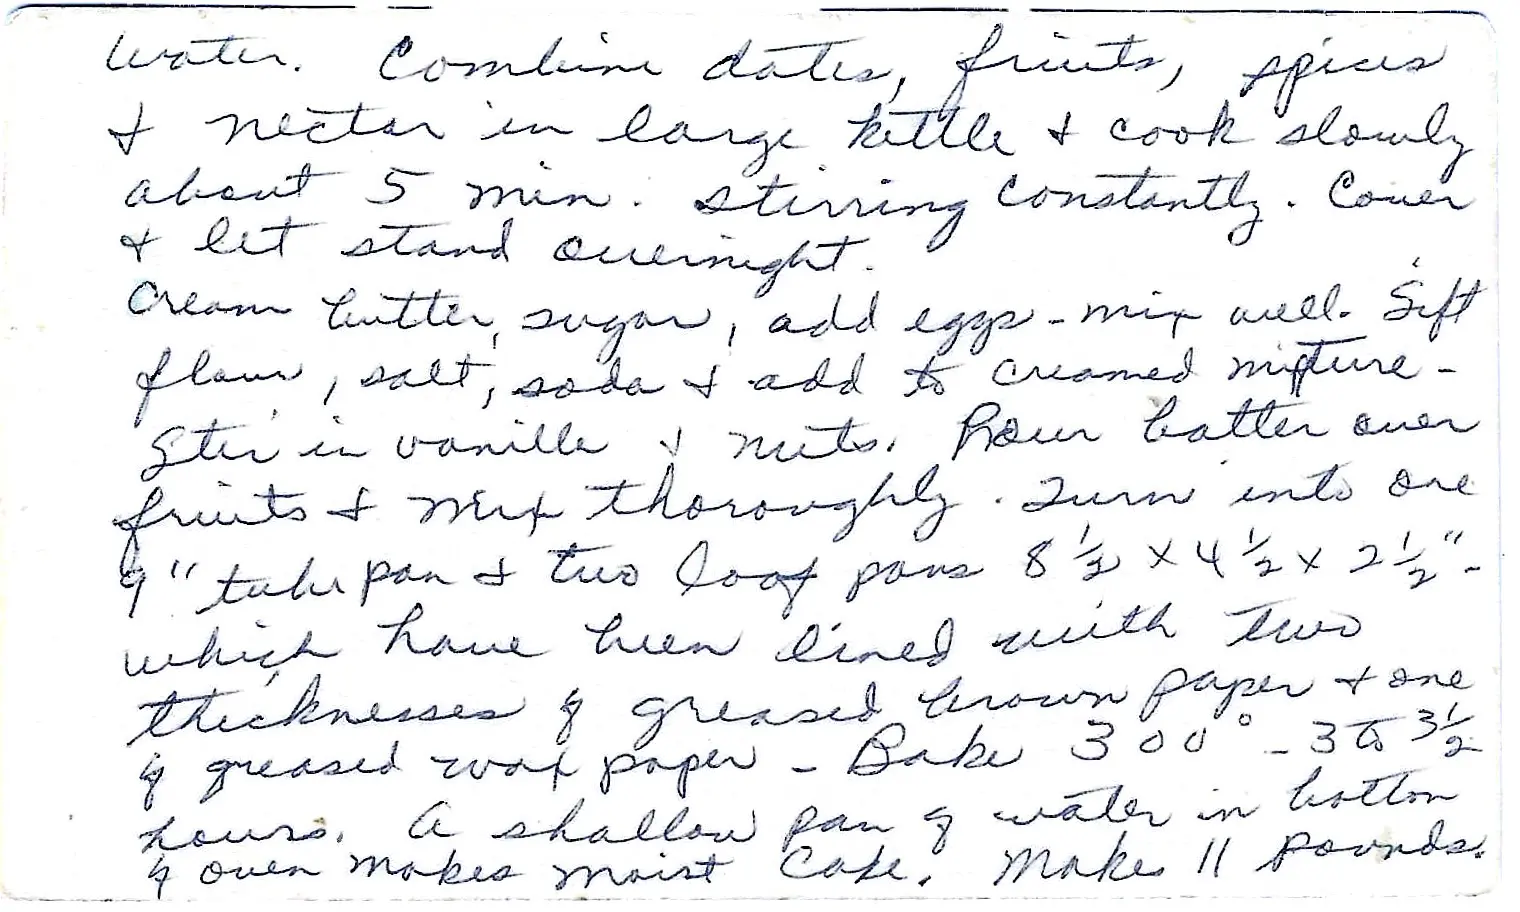 water. Combine dates, fruits, spices
& nectar in large kettle & cook slowly
about 5 min. stirring constantly. Cover
& let stand overnight.
Cream butter, sugar, add eggs - mix well. Sift
flour, salt, soda & add to creamed mixture -
Stir in vanilla & nuts. Pour batter over
fruits & mix thoroughly. Turn into one
9" tube pan & two loaf pans 8 1/2 x 4 1/2 x 2 1/2" -
which have been lined with two
thicknesses of greased brown paper & one
of greased wax paper - Bake 300° - 3 to 3 1/2
hours. A shallow pan of water in bottom
of oven makes moist cake. Makes 11 pounds.